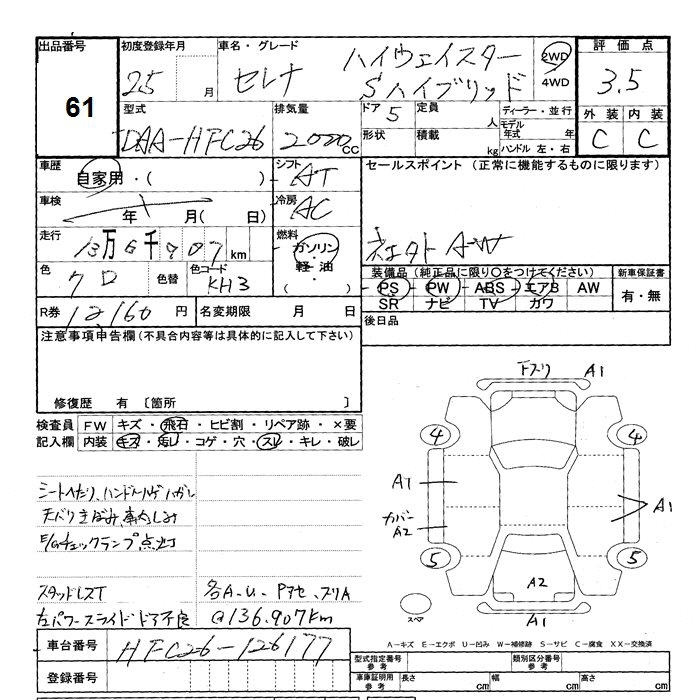 出品番号 初度登録年月 車名・グレード 評価点
61
25 月 セレナ ハイウェイスター
Sハイブリッド
2WD
4WD
3.5
外装 内装
C C
型式 排気量 ドア 定員 ディーラー・並行
DAA-HFC26 2000cc 5 人 モデル年式 年
形状 積載 kg ハンドル 左・右
車歴 シフト セールスポイント (正常に機能するものに限ります)
自家用・( ) AT
車検 冷房
年 月( 日) AC
走行 燃料
13万6千907km ガソリン・軽油
・( )
AW
色 色替 色コード
KH3
装備品(純正品に限り○をつけてください) 新車保証書
PS PW ABS エアB AW 有・無
SR ナビ TV カワ
R券 12160円 名変期限 月 日
後日品
注意事項申告欄(不具合内容等は具体的に記入して下さい)
修復歴 有 〔箇所 〕
検査員 FW キズ・飛石・ヒビ割・リペア跡・×要
記入欄 内装 キズ・汚レ・コゲ・穴・スレ・キレ・破レ
シートへたり、ハンドルハガレ
天バリきばみ、車内しみ
E/Gチェックランプ点灯
スタッドレスT 各A・U・
左パワースライドドア不良 @136.907km
車台番号 HFC26-126177
登録番号
A1
4 4
A1 A1
カバー
A2
5 5
A2
スペア A1
A-キズ E-エクボ U-凹み W-補修跡 S-サビ C-腐食 XX-交換済
型式指定番号 参考 類別区分番号 参考
車庫証明用 参考 長さ cm 幅 cm 高さ cm